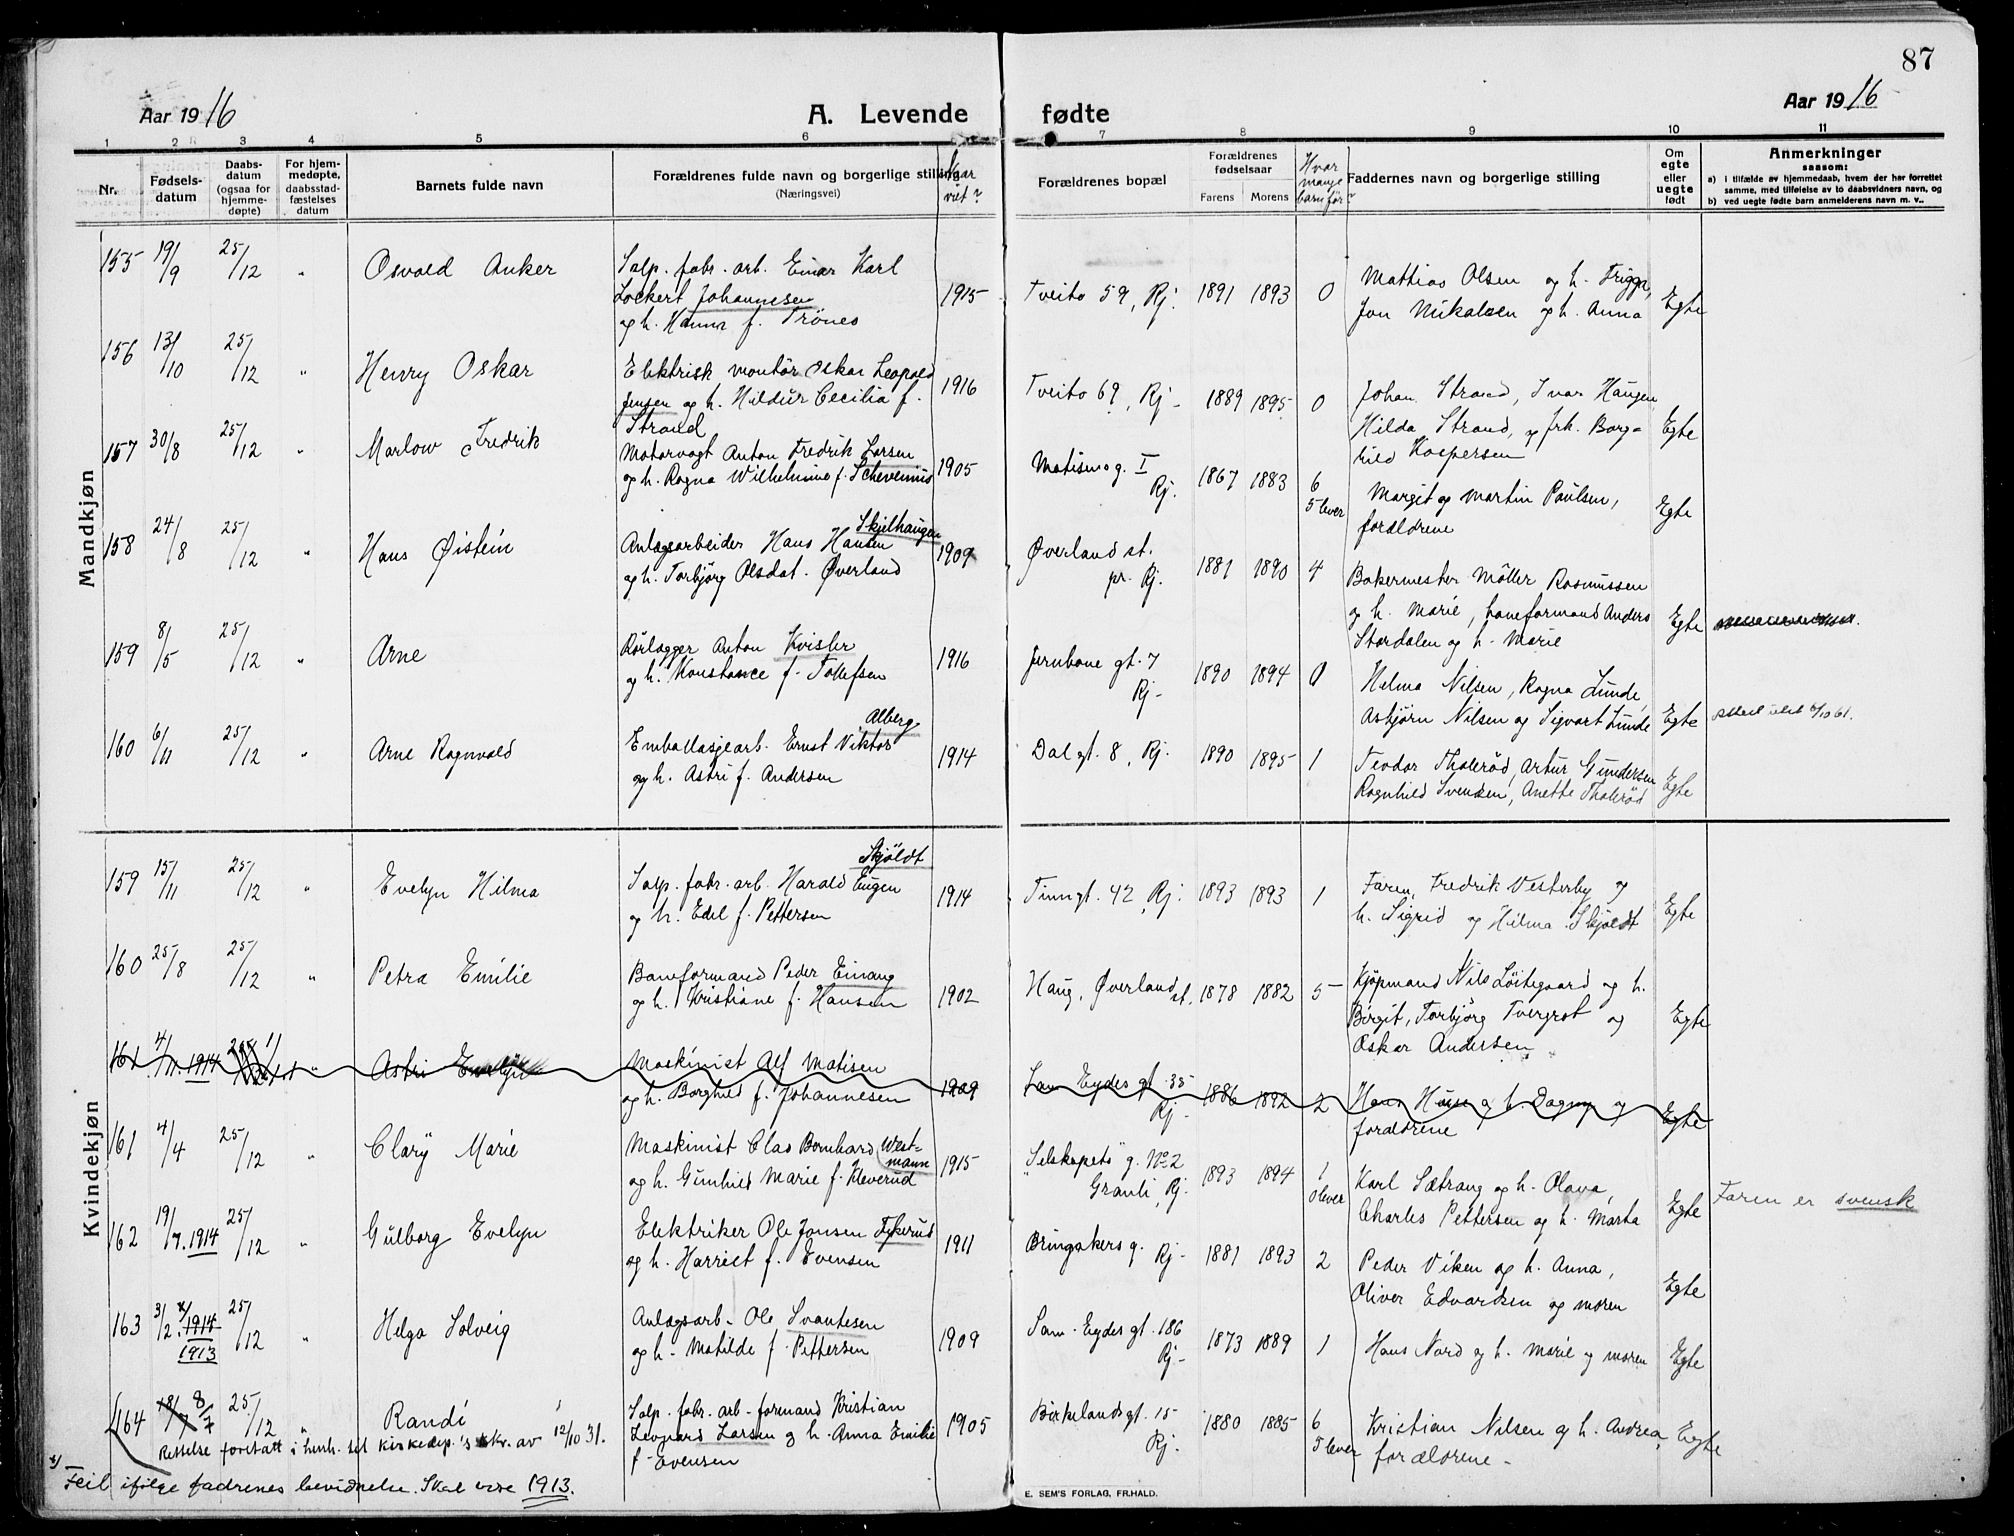 87
Aar 1916
A. Levende fødte
Aar 1916
1 2 3 4 5 6 7 8 9 10 11
Nr.
Fødsels-
datum
Daabs-
datum
(ogsaa for
hjemme-
døpte)
For hjem-
medøpte,
daabsstad-
fæstelses
datum
Barnets fulde navn
Forældrenes fulde navn og borgerlige stilling
(Næringsvei)
Naar
viet?
Forældrenes bopæl
Forældrenes
fødselsaar
Farens Morens
Hvor
mange
barn før?
Faddernes navn og borgerlige stilling
Om
egte
eller
uegte
født
Anmerkninger
saasom:
a) i tilfælde av hjemmedaab, hvem der har forrettet
samme, med tilføielse av to daabsvidners navn, og
b) ved uegte fødte barn anmelderens navn m. v..
Mandkjøn
155 19/9 25/12 " Osvald Anker
Salp. fabr. arb. Einar Karl
Lockert Johannesen
og h. Hanna f. Trönes
1915 Tveito 59, Rj. 1891 1893 0
Mattias Olsen og h. Frigga,
Jon Mikalsen og h. Anna
Egte
156 13/10 25/12 " Henry Oskar
Elektrisk montør Oskar Leopold
Jensen og h. Hildur Cecilia f.
Strand
1916 Tveito 69, Rj- 1889 1895 0
Johan Strand, Ivar Haugen
Hilda Strand, og frk. Borg-
hild Kaspersen
Egte
157 30/8 25/12 " Marlow Fredrik
Motorvogt Anton Fredrik Larsen
og h. Ragna Wilhelmine f. Schevenius
1905 Matisens g. I
Rj. 1867 1883 6
5 lever
Margit og Martin Paulsen,
forældrene
Egte
158 24/8 25/12 " Hans Øistein
Skjelhaugen
Anlægsarbeider Hans Hansen
og h. Torbjörg Olsdat. Øverland
1909 Øverland st.
pr. Rj. 1881 1890 4
Bakermester Möller Rasmussen
og h. Marie, baneformand Anders
Stordalen og h. Marie
Egte
159 8/5 25/12 " Arne
Rörlægger Anton Kvisler
og h. Konstance f. Tollefsen
1916 Jernbane gt. 7
Rj- 1890 1894 0
Helma Nilsen, Ragna Lunde,
Asbjörn Nilsen og Sigvart Lunde
Egte
160 6/11 25/12 " Arne Ragnvald
Alberg
Emballasjearb. Ernst Viktor
og h. Astri f. Andersen
1914 Dal gt. 8, Rj. 1890 1895 1
Teodor Tholeröd, Artur Gundersen
Ragnhild Svendsen, Anette Tholeröd
Egte
Kvindekjøn
159 15/11 25/12 " Evelyn Hilma
Skjöldt
Salp. fabr. arb. Harald Eugen
og h. Edel f. Pettersen
1914 Tinngt. 42, Rj. 1893 1893 1
Faren, Fredrik Vesterby og
h. Sigrid og Hilma Skjöldt
Egte
160 25/8 25/12 " Petra Emilie
Baneformand Peder Einang
og h. Kristiane f. Hansen
1902 Haug, Øverland st. 1878 1882 5
Kjøpmand Nils Löitegaard og h.
Birgit, Torbjörg Tvergrot og
Oskar Andersen
Egte
161 4/11. 1914 " Astri Evelyn
Maskinist Alf Matisen
og h. Borghild f. Johannesen
1909 Sam Eydes gt. 35
Rj- 1886 1892 2
Hans Huse og h. Dagny og
forældrene
Egte
161 4/4 25/12 " Clary Marie
Maskinist Clas Bernhard West-
mann
og h. Gunhild Marie f. Kleverud
1915 "Selskapets" g. No 2
Granli, Rj. 1893 1894 1
0 lever
Karl Sætrang og h. Olava,
Charles Pettersen og h. Marta
Egte Faren er svensk
162 19/7. 1914 25/12 " Gulborg Evelyn
Elektriker Ole Jonsen Fykerud
og h. Harriet f. Evensen
1911 Bringakers g. Rj- 1881 1893 2
Peder Viken og h. Anna,
Oliver Edvardsen og moren
Egte
163 3/2. x/ 1914
1913 25/12 " Helga Solveig
Anlægsarb- Ole Svantesen
og h- Matilde f. Pettersen
1909 Sam. Eydes gt. 186
Rj- 1873 1889 1
Hans Nord og h. Marie og moren
Egte
164 18/7 8/7 25/12 " Randi
Salp. fabr. arb- formand Kristian
Leonard Larsen og h. Anna Emilie
f- Evensen
1905 Birkelands gt. 15
Rj. 1880 1885 6
5 lever
Kristian Nilsen og h. Andrea,
forældrene -
Egte
Rettelse foretatt i henh. til kirkedep.'s skr. av 12/10 31.
x/ Feil ifölge fadrenes bevidnelse. Skal være 1913.
E. SEM'S FORLAG, FR.HALD.